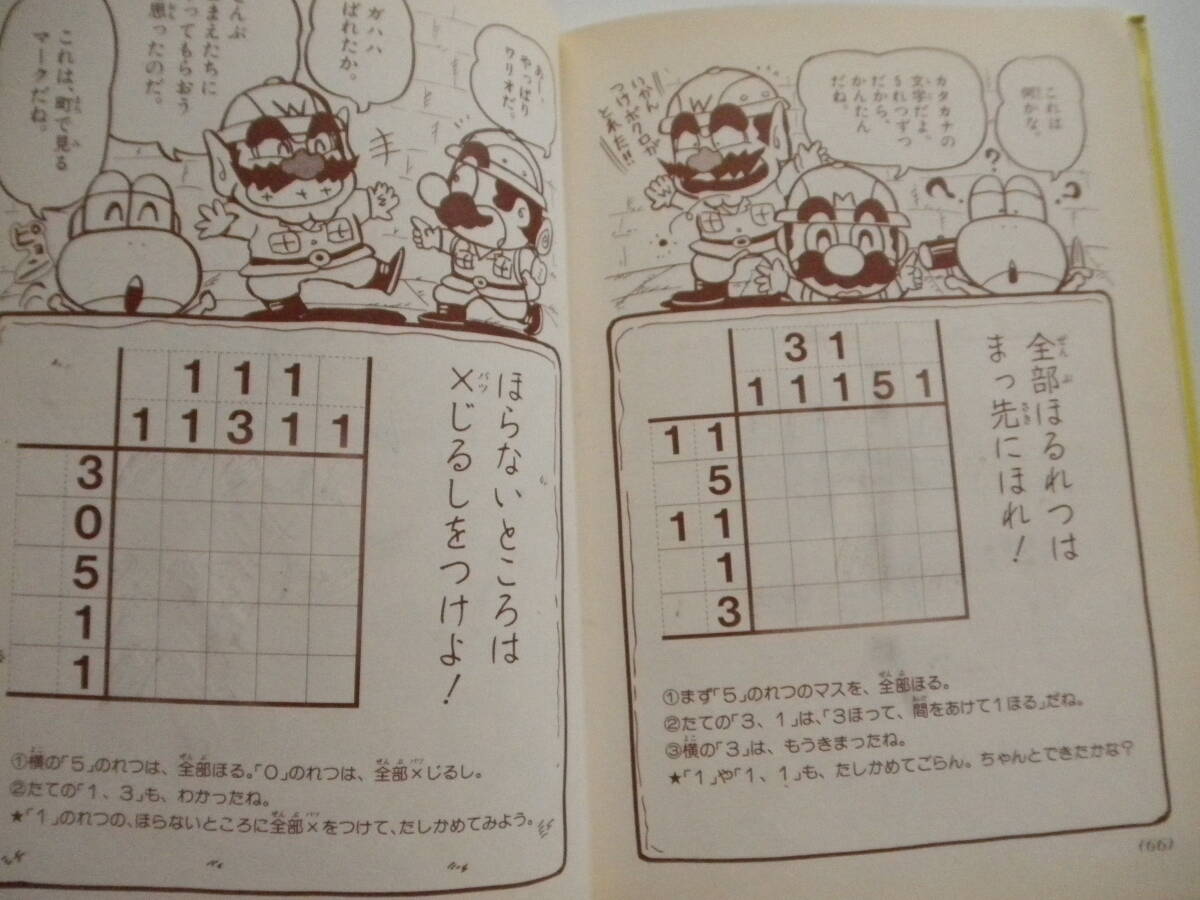 これは
何かな。
?
?
?
カタカナの
文字だよ。
5れつずつ
だから、
かんたん
だね。
いかん
つけボクロが
とれた!!
全部ほるれつは
まっ先にほれ！
3 1
1 1 1 5 1
1 1
5
1 1
1
3
①まず「5」のれつのマスを、全部ほる。
②たての「3、1」は、「3ほって、間をあけて1ほる」だね。
③横の「3」は、もうきまったね。
★「1」や「1、1」も、たしかめてごらん。ちゃんとできたかな？
(66)
あー、
やっぱり
ワリオだ。
ガハハ
ばれたか。
まえたちに
ってもらおう
思ったのだ。
これは、町で見る
マークだね。
ピョン
ほらないところは
×じるしをつけよ！
1 1 1
1 1 3 1 1
3
0
5
1
1
①横の「5」のれつは、全部ほる。「0」のれつは、全部×じるし。
②たての「1、3」も、わかったね。
★「1」のれつの、ほらないところに全部×をつけて、たしかめてみよう。